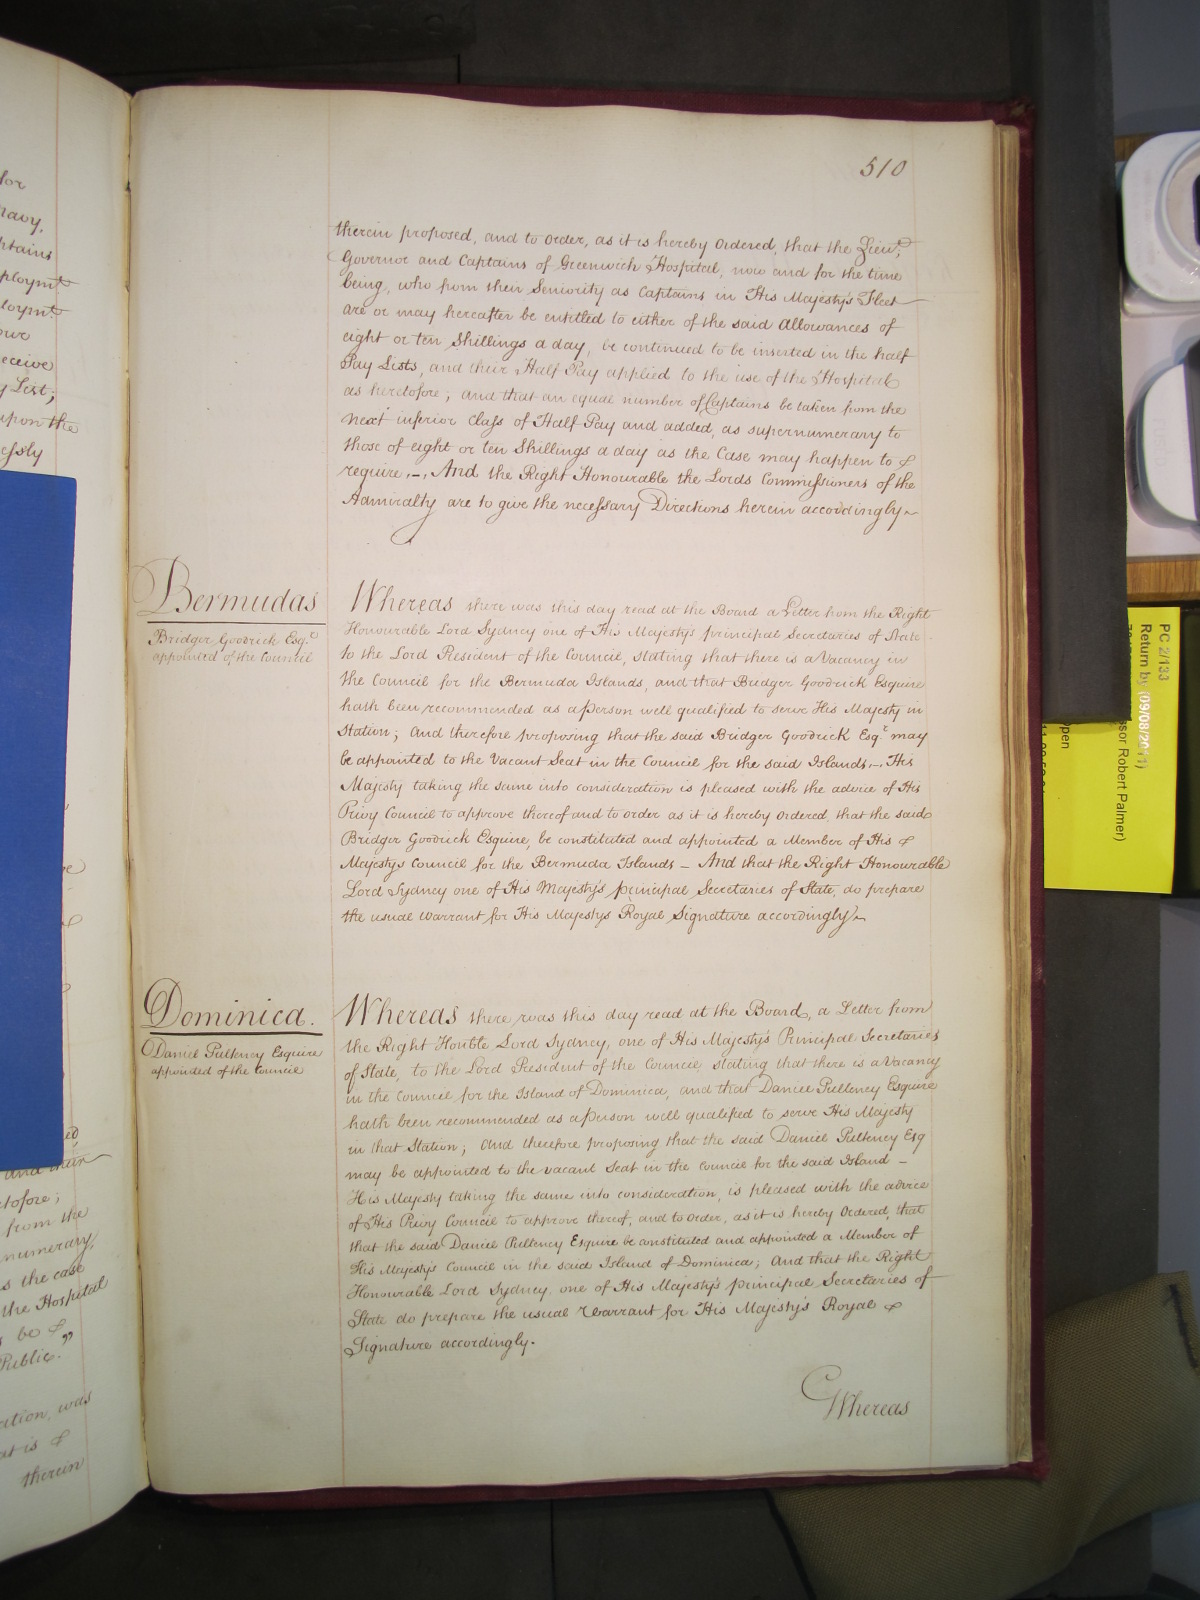 510
therein proposed, and to order, as it is hereby Ordered, that the Lieut.
Governor and Captains of Greenwich Hospital, now and for the time
being, who from their Seniority as Captains in His Majesty's Fleet
are or may hereafter be entitled to either of the said Allowances of
eight or ten Shillings a day, be continued to be inserted in the half
Pay Lists, and their Half Pay applied to the use of the Hospital
as heretofore; and that an equal number of Captains be taken from the
next inferior Class of Half Pay and added, as supernumerary to
those of eight or ten Shillings a day as the Case may happen to
require.-. And the Right Honourable the Lords Commissioners of the
Admiralty are to give the necessary Directions herein accordingly~
Bermudas
Bridger Goodrick Esq.r
appointed of the Council
Whereas there was this day read at the Board a Letter from the Right
Honourable Lord Sydney one of His Majesty's principal Secretaries of State
to the Lord President of the Council, stating that there is a Vacancy in
the Council for the Bermuda Islands, and that Bridger Goodrick Esquire
hath been recommended as a Person well qualified to serve His Majesty in
Station; And therefore proposing that the said Bridger Goodrick Esq.r may
be appointed to the Vacant Seat in the Council for the said Islands.-. His
Majesty taking the same into consideration is pleased with the advice of His
Privy Council to approve thereof and to order as it is hereby Ordered, that the said
Bridger Goodrick Esquire, be constituted and appointed a Member of His
Majestys Council for the Bermuda Islands - And that the Right Honourable
Lord Sydney one of His Majesty's principal Secretaries of State, do prepare
the usual Warrant for His Majestys Royal Signature accordingly~
Dominica.
Daniel Pulteney Esquire
appointed of the Council
Whereas there was this day read at the Board, a Letter from
the Right Honble Lord Sydney, one of His Majesty's Principal Secretaries
of State, to the Lord President of the Council, stating that there is a Vacancy
in the Council for the Island of Dominica, and that Daniel Pulteney Esquire
hath been recommended as a Person well qualified to serve His Majesty
in that Station; And therefore proposing that the said Daniel Pulteney Esq
may be appointed to the vacant Seat in the Council for the said Island -
His Majesty taking the same into consideration, is pleased with the advice
of His Privy Council to approve thereof, and to order, as it is hereby Ordered, that
that the said Daniel Pulteney Esquire be constituted and appointed a Member of
His Majesty's Council in the said Island of Dominica; And that the Right
Honourable Lord Sydney one of His Majesty's principal Secretaries of
State do prepare the usual Warrant for His Majesty's Royal
Signature accordingly.
Whereas
for
Navy,
eceive
y List;
upon the
and their
etofore;
from the
numerary,
s the case
the Hospital
be
Public."
ation, was
at is
therein
PC 2/133
Return by (09/08/2011)
ssor Robert Palmer)